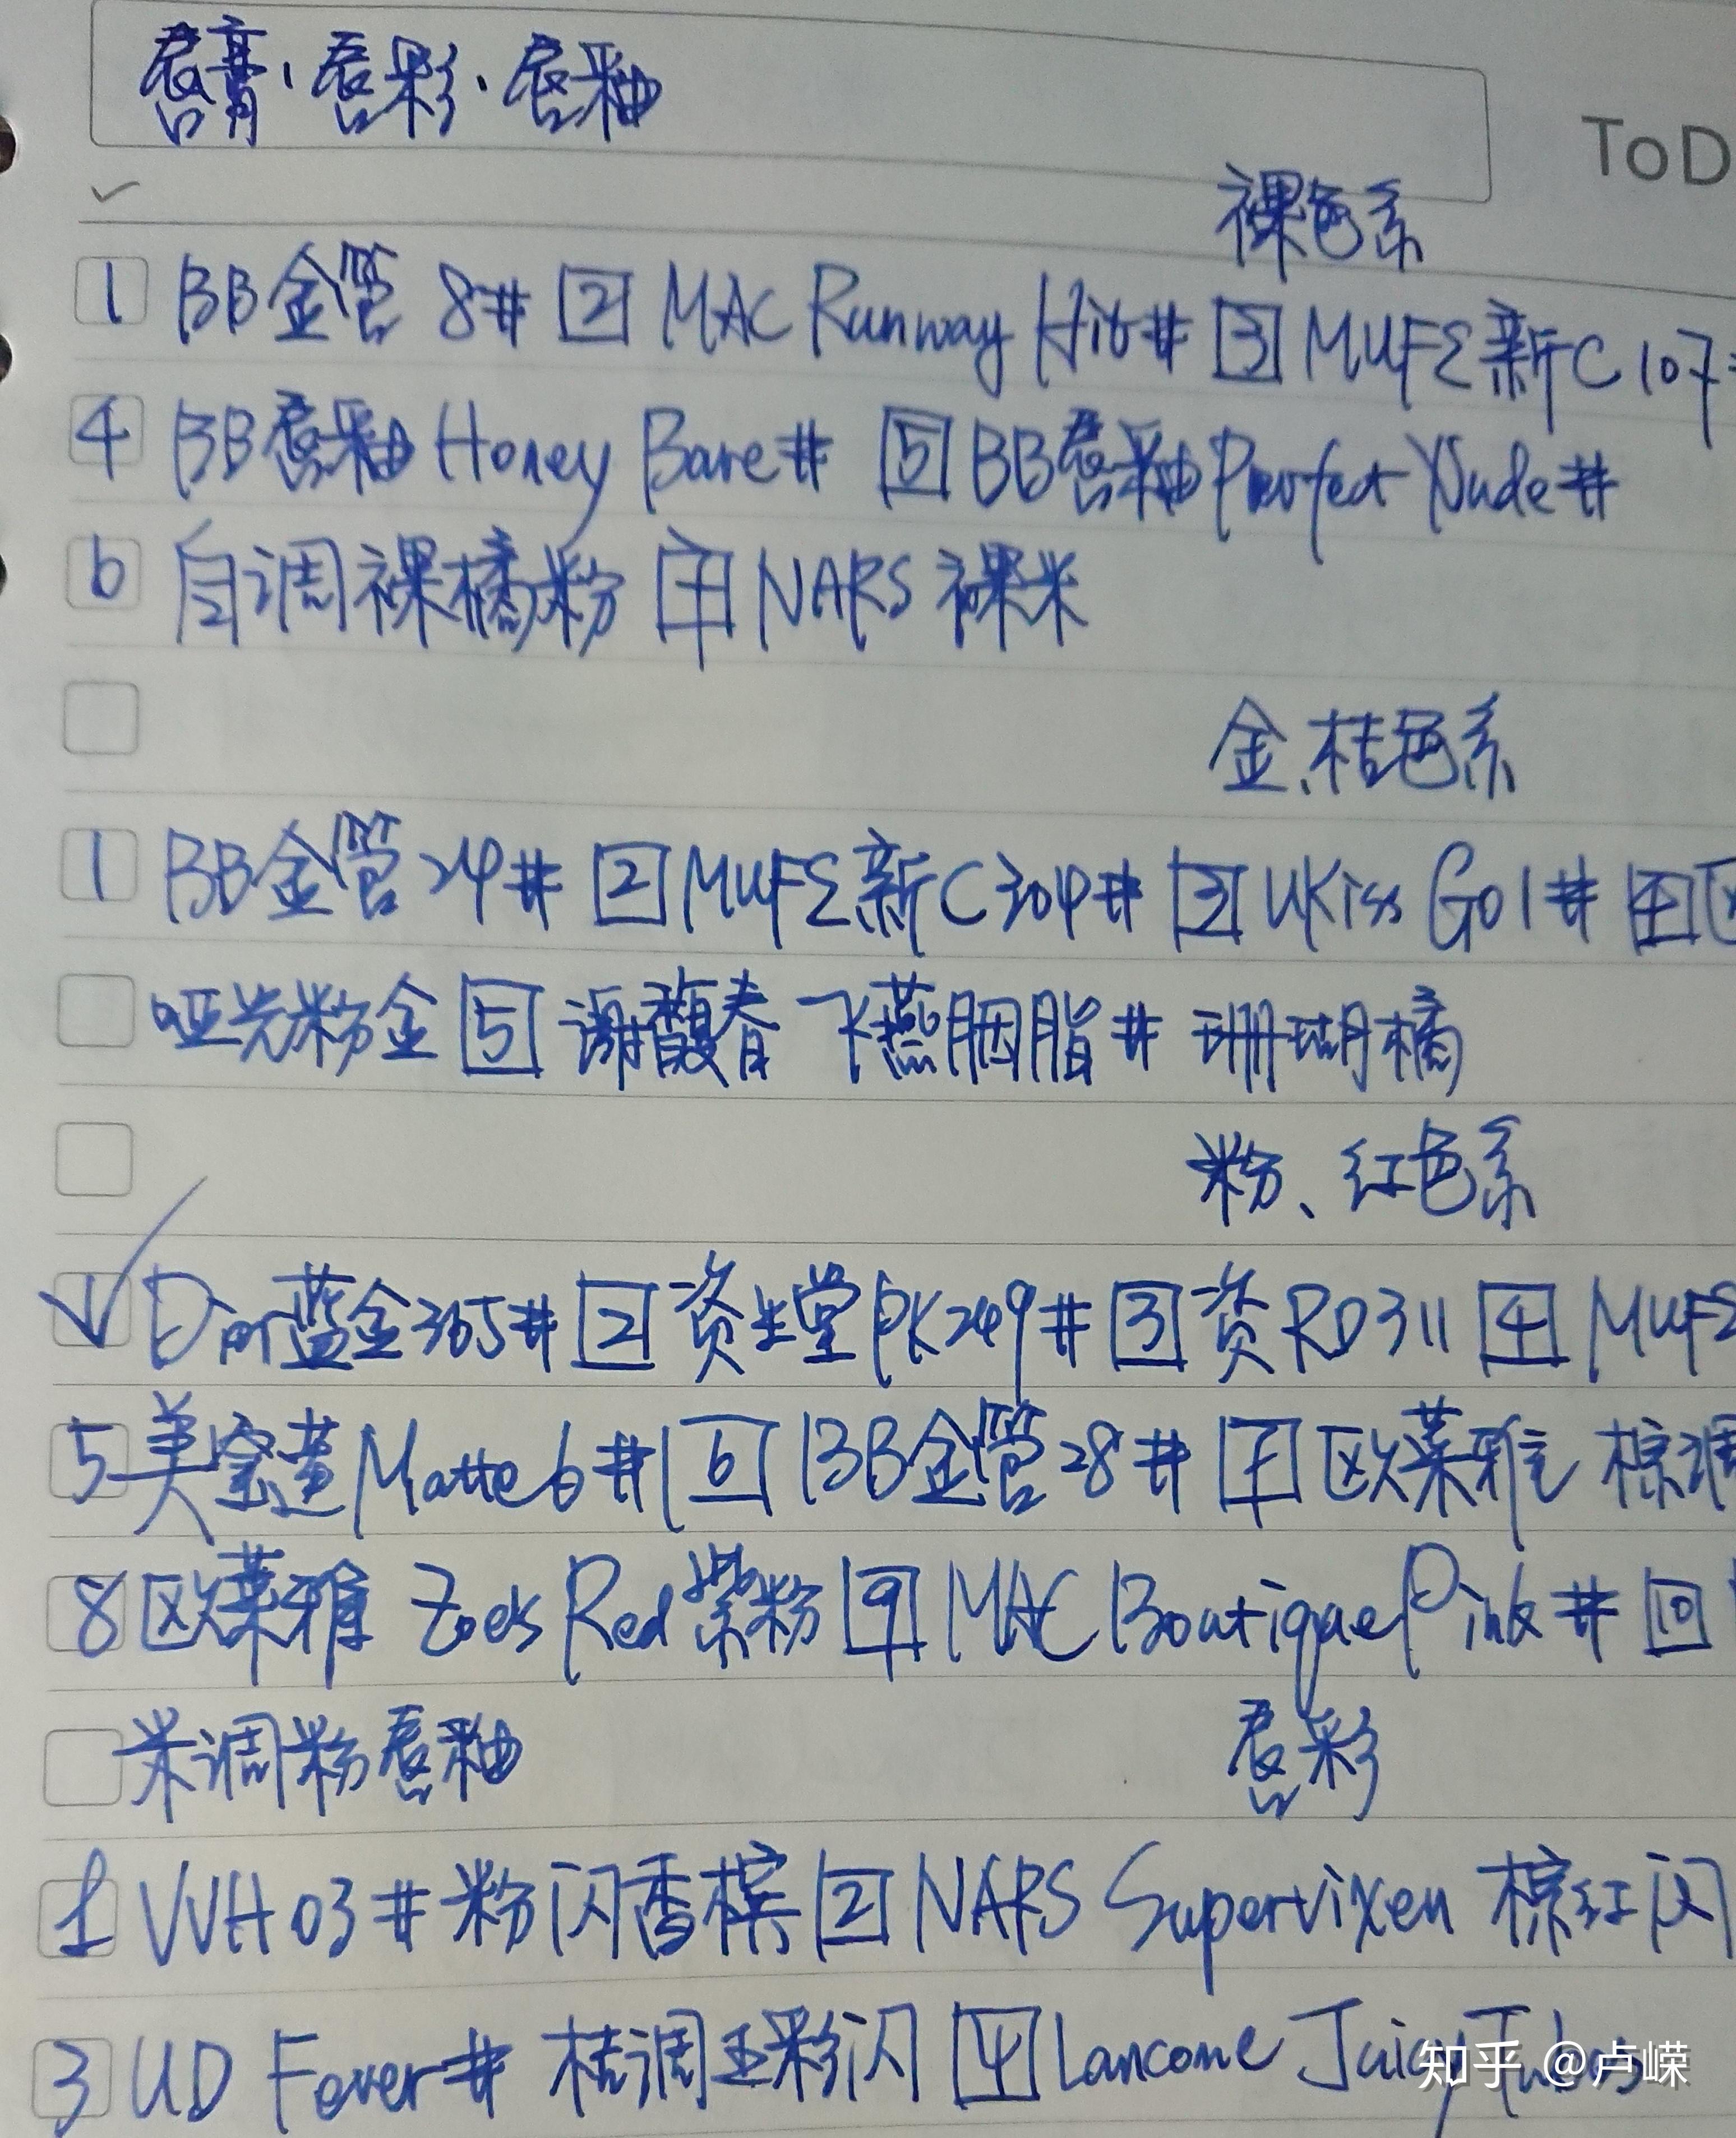 唇膏、唇彩、唇釉
ToD
裸色系
1 BB金管 8# 2 MAC Runway Hit# 3 MUFE新C107
4 BB唇釉 Honey Bare# 5 BB唇釉 Perfect Nude#
6 自调裸橘粉 7 NARS 裸米
金、桔色系
1 BB金管24# 2 MUFE新C304# 3 UKiss G01# 4
哑光粉金 5 谢馥春 飞燕胭脂# 珊瑚橘
粉、红色系
Dior蓝金365# 2 资生堂PK249# 3 资RD311 4 MUFE
5 美宝莲Matte6# 6 BB金管28# 7 欧莱雅 棕调
8 欧莱雅 Zoe's Red紫粉 9 MAC Boutique Pink# 10
米调粉唇釉
唇彩
1 VVH03# 粉闪香槟 2 NARS Supervixen 棕红闪
3 UD Fever# 桔调玉彩闪 4 Lancome Juicy Tubes
知乎 @卢嵘